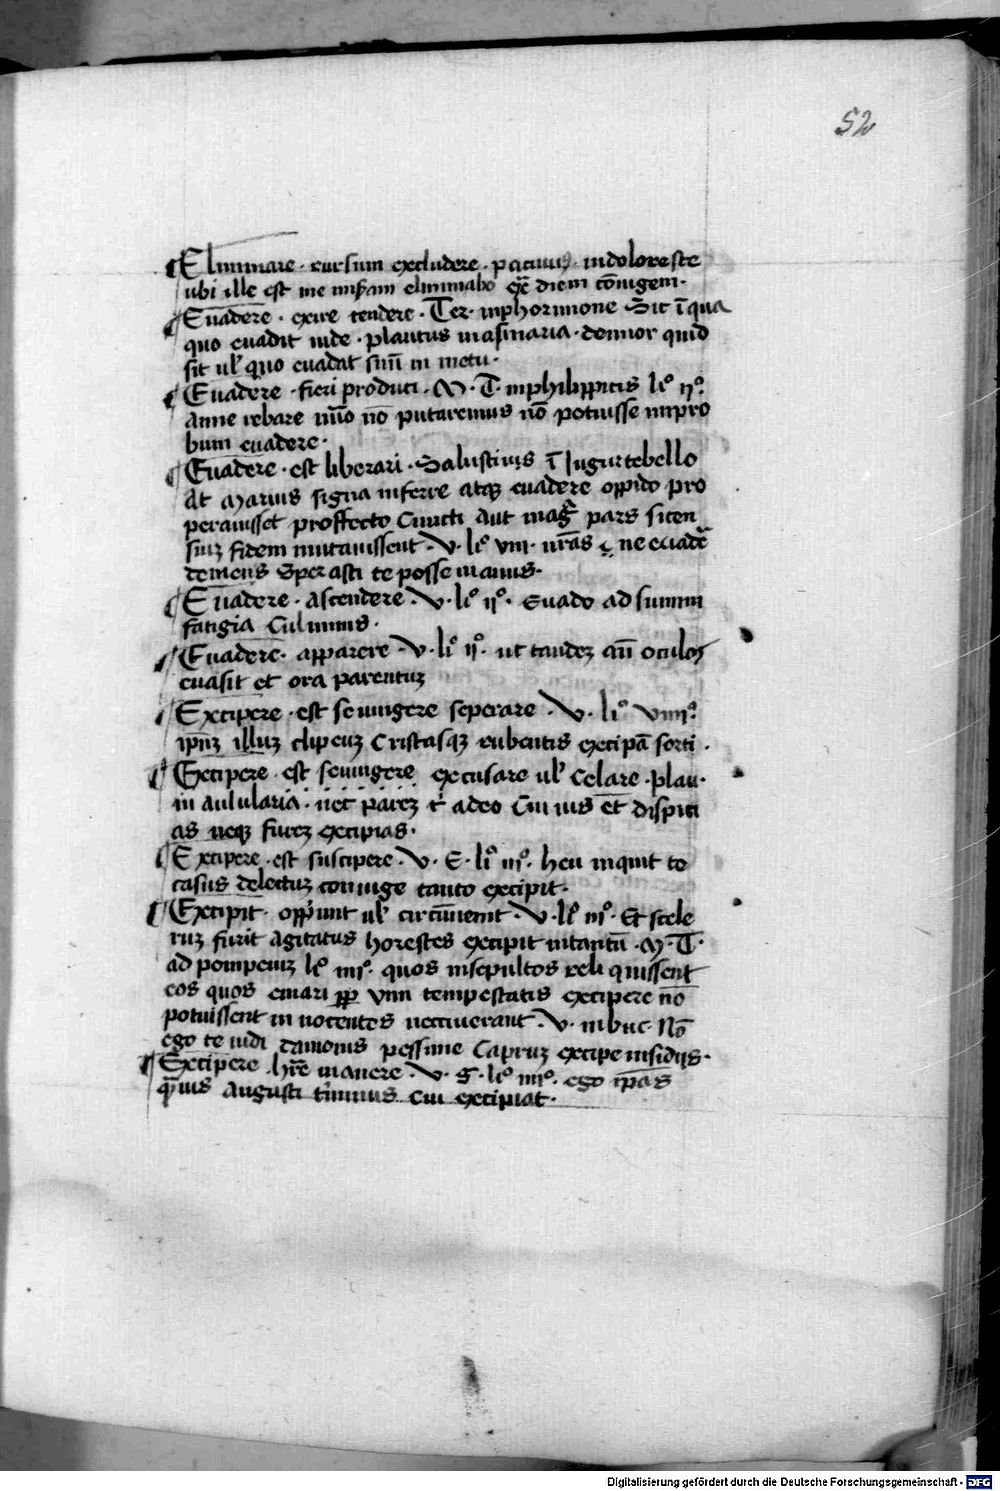 52
¶ Eliminare · rursum excludere · pacuuius · indoloreste
ubi ille est me nuꝑam eliminabo eē diem cōiugem ·
¶ Euadere · exire tendere · Ter · inphormione Sit ī qua
quo euadit inde · plautus inasinaria · demior quid
sit ul' quo euadat sum̄ in metu ·
¶ Euadere · fieri produci · M · T · inphilippicis liº ijº ·
anne rebare nūo nō putaremus nō potuisse impro
bum euadere ·
¶ Euadere · est liberari · Salustius ī Jugurtebello
At Marius signa inferre atqꝫ euadere oppido pro
perauisset proffecto Cuncti Aut mag̃ pars sicen
siuꝫ fidem mutauissent · V · liº viii · ur̄as ne euadē
demens Sperasti te posse manus ·
¶ Euadere · Ascendere · V · liº ijº · Euado ad summi
fatigia Culminis ·
¶ Euadere · apparere · V · liº ijº · ut tandeꝫ añ oculos
euasit et ora parentuꝫ
¶ Excipere · est seuingere seperare · V · liº viiiiº ·
ip̄uꝫ illuꝫ clipeuꝫ Cristasqꝫ rubentis excipā sorti ·
¶ Excipere · est seuingere excusare ul' Celare · plau ·
in aulularia · nec pareꝫ t' adeo Cui ius et dispici
as neqꝫ fureꝫ excipias ·
¶ Excipere · est suscipere · V · E · liº iijº · heu inquit te
casus delectuꝫ coniuge tanto excipit ·
¶ Excipit · opp̄imit ul' circūuenit · V · liº iijº · Et scele
ruꝫ furit Agitatus horestes excipit intantū · M · T ·
ad pompeiuꝫ liº iiijº · quos insepultos reli quissent
eos quos emari ꝓp vim tempestatis excipere nō
potuissent in nocentes necuerant · V · inbuc · Nō
ego te uidi damonis pessime Capruꝫ excipe insidijs ·
¶ Excipere · hr̄e manere · V · G · liº iiijº · ego ip̄as
quis Augusti t'minus cui excipiat ·
Digitalisierung gefördert durch die Deutsche Forschungsgemeinschaft - DFG